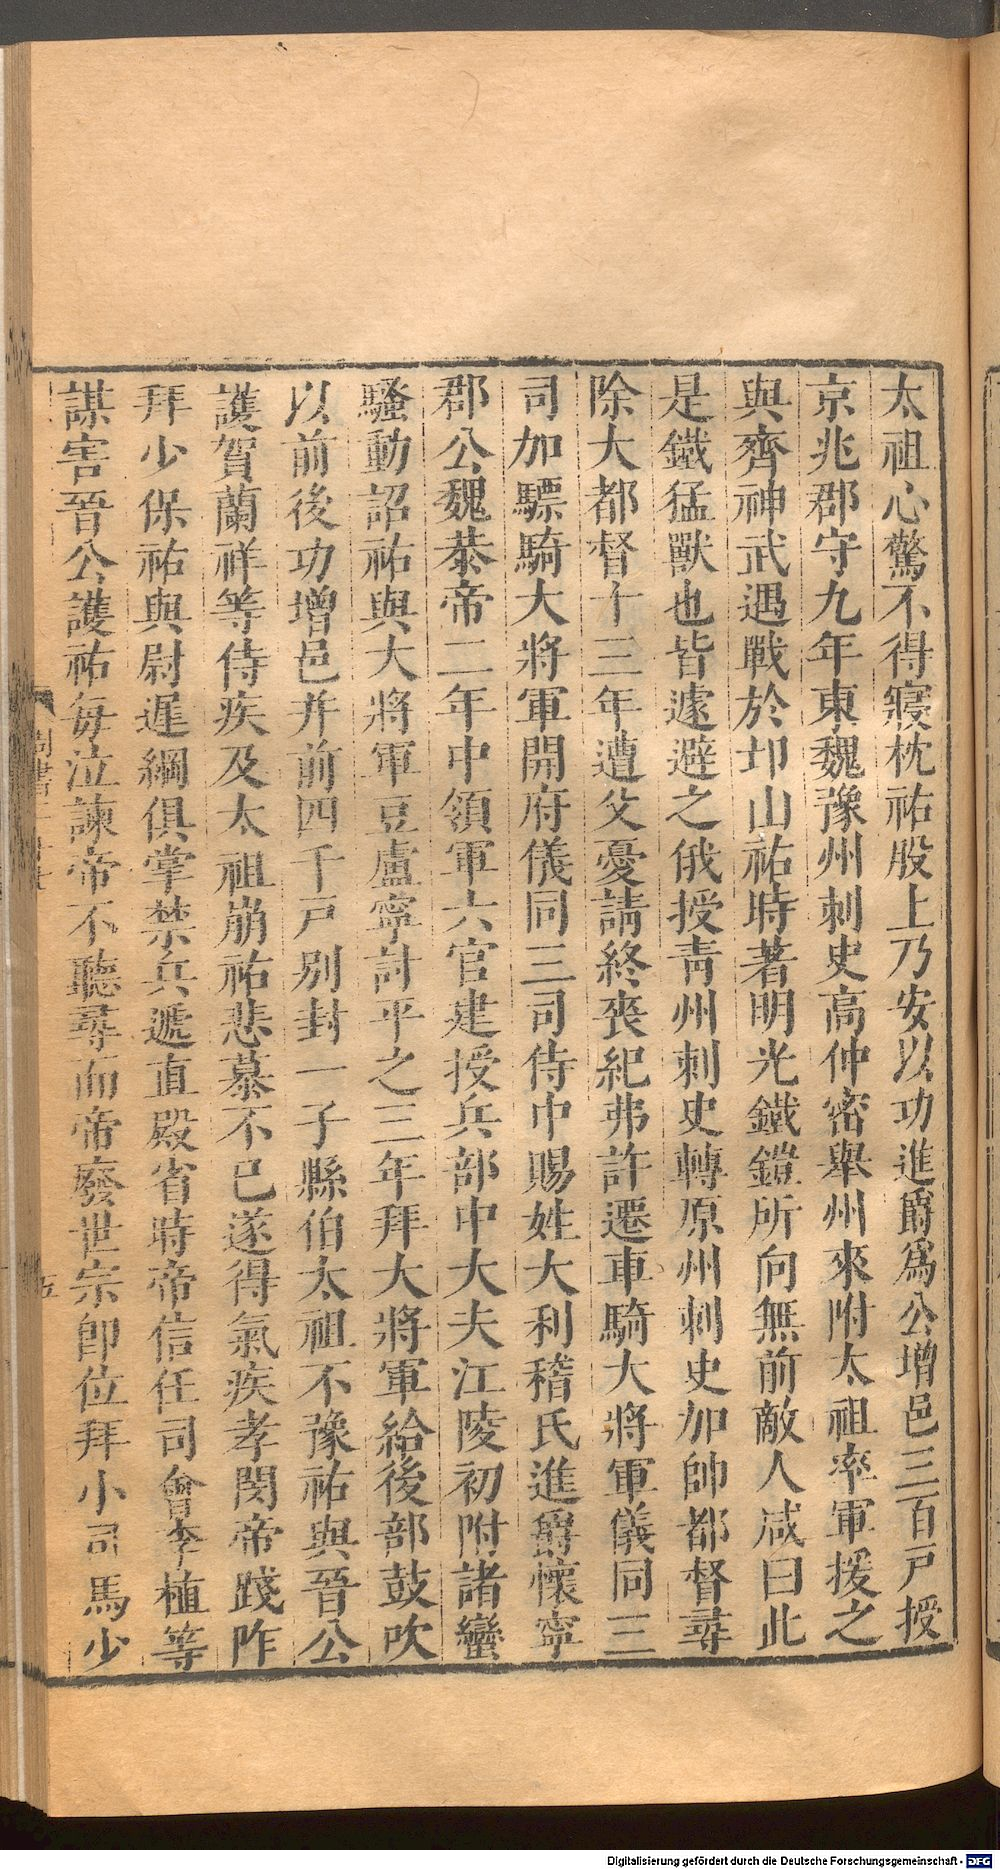 太祖心驚不得寢枕祐股上乃安以功進爵爲公增邑三百戸授
京兆郡守九年東魏豫州刺史高仲密舉州來附太祖率軍援之
與齊神武遇戰於邙山祐時著明光鐵鎧所向無前敵人咸曰此
是鐵猛獸也皆遽避之俄授青州刺史轉原州刺史加帥都督尋
除大都督十三年遭父憂請終喪紀弗許遷車騎大將軍儀同三
司加驃騎大將軍開府儀同三司侍中賜姓大利稽氏進爵懷寧
郡公魏恭帝二年中領軍六官建授兵部中大夫江陵初附諸蠻
騷動詔祐與大將軍豆盧寧討平之三年拜大將軍給後部鼓吹
以前後功增邑并前四千戸別封一子縣伯太祖不豫祐與晉公
護賀蘭祥等侍疾及太祖崩祐悲慕不已遂得氣疾孝閔帝踐阼
拜少保祐與尉遲綱俱掌禁兵遞直殿省時帝信任司會李植等
謀害晉公護祐每泣諫帝不聽尋而帝廢世宗卽位拜小司馬少
五
Digitalisierung gefördert durch die Deutsche Forschungsgemeinschaft - DFG